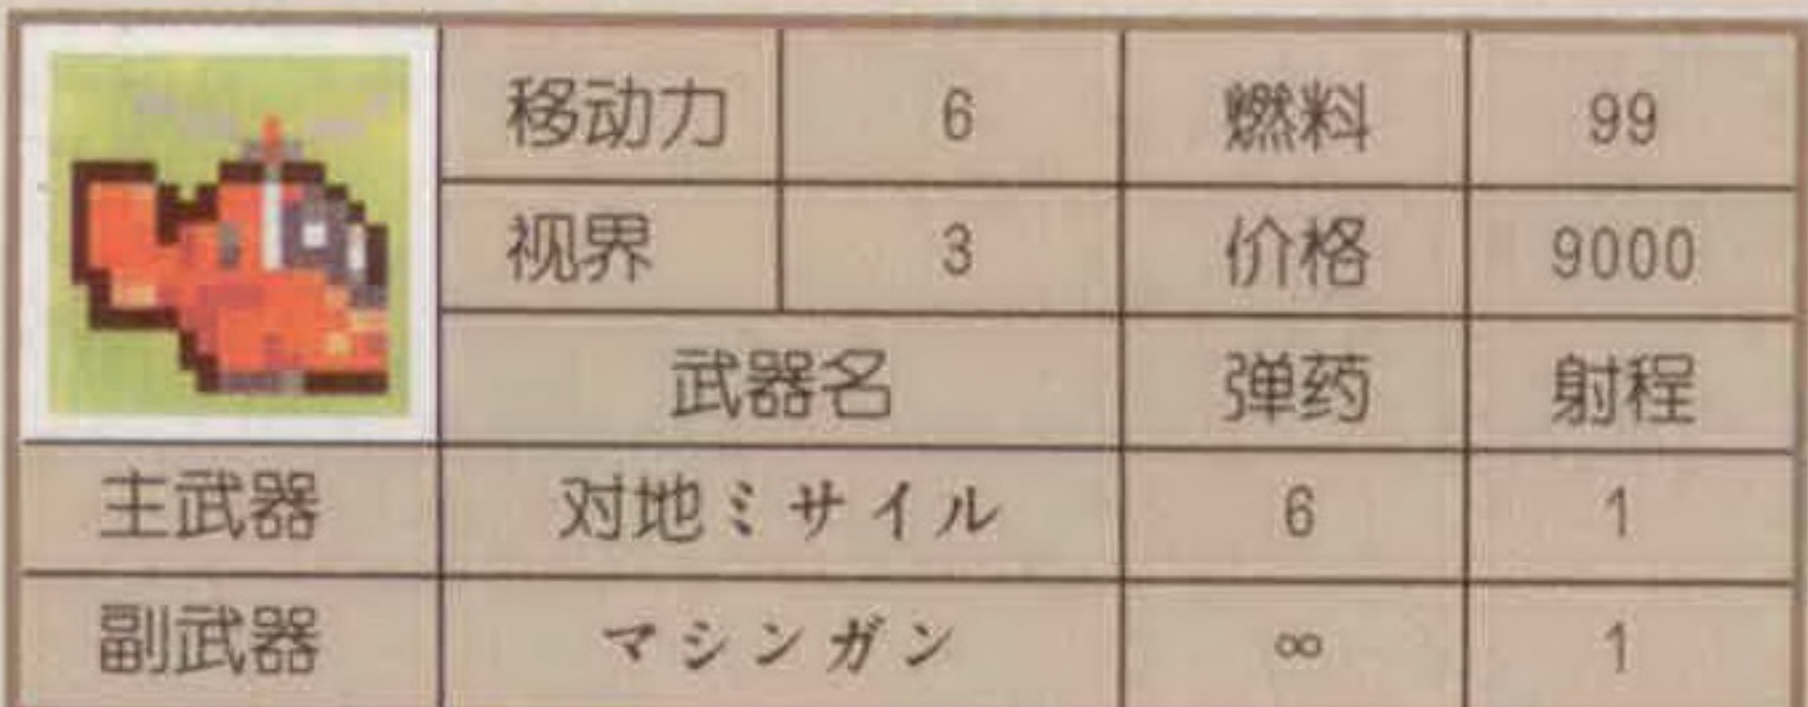 移动力 6 燃料 99
视界 3 价格 9000
武器名 弹药 射程
主武器 对地ミサイル 6 1
副武器 マシンガン ∞ 1